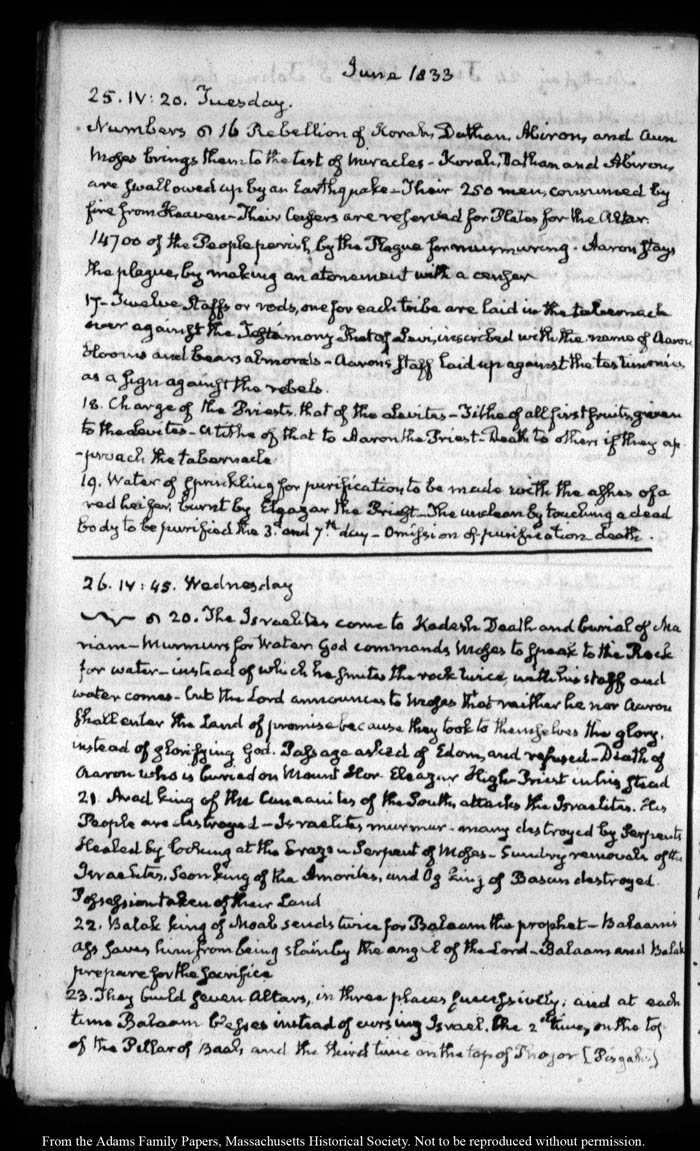 June 1833
25. IV: 20. Tuesday.
Numbers 16 Rebellion of Korah, Dathan, Abiron, and Aun
Moses brings them to the test of Miracles - Korah, Dathan and Abiron,
are swallowed up by an Earthquake - Their 250 men, consumed by
fire from Heaven - Their Censers are reserved for Plates for the Altar.
14700 of the People perish by the Plague for murmuring. Aaron stays
the plague, by making an atonement with a censer
17 - Twelve Staffs or rods, one for each tribe are laid in the tabernach
over against the Testimony That of Levi, inscribed with the name of Aaron
blooms and bears almonds - Aaron's staff laid up against the testimonies
as a sign against the rebels.
18. Charge of the Priests, that of the Levites - Tithe of all first fruits, given
to the Levites - a tithe of that to Aaron the Priest - Death to others if they ap-
-proach the tabernacle
19. Water of sprinkling for purification, to be made with the ashes of a
red heifer, burnt by Eleazar the Priest - The unclean by touching a dead
body to be purified the 3d. and 7th day - Omission of purification death.
26. IV: 45. Wednesday
20. The Israelites come to Kadesh Death and burial of Ma
riam - Murmurs for Water God commands Moses to speak to the Rock
for water - instead of which he smites the rock twice, with his staff and
water comes - but the Lord announces to Moses that neither he nor Aaron
shall enter the Land of promise because they took to themselves the glory,
instead of glorifying God. Passage asked of Edom, and refused - Death of
Aaron who is buried on Mount Hor - Eleazar High-Priest in his stead
21. Arad king of the Canaanites of the South, attacks the Israelites. His
People are destroyed - Israelites murmur - many destroyed by Serpents
Healed by looking at the Brazen Serpent of Moses - Sundry removals of the
Israelites, Seon king of the Amorites, and Og king of Basan destroyed.
Possession taken of their Land
22. Balak king of Moab sends twice for Balaam the prophet - Balaam's
ass saves him from being slain by the angel of the Lord - Balaam and Balak
prepare for the sacrifice
23. They build seven Altars, in three places successively; and at each
time Balaam blesses instead of cursing Israel. The 2d time, on the top
of the Pillar of Baal, and the third time on the top of Phogor [Pisgah]
From the Adams Family Papers, Massachusetts Historical Society. Not to be reproduced without permission.